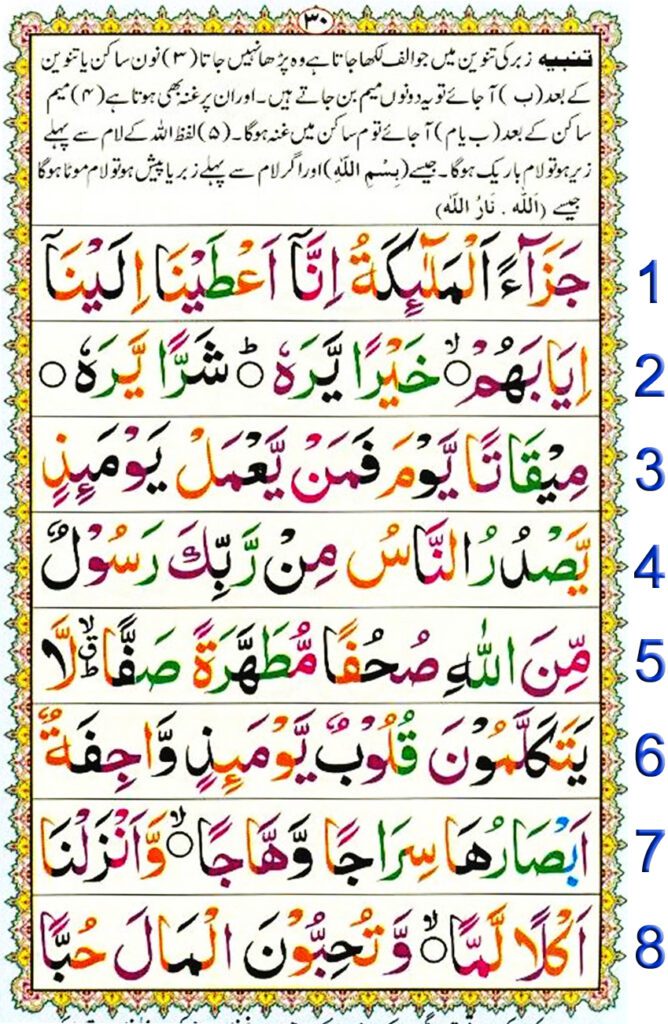 ٣٠
تنبیہ زبر کی تنوین میں جو الف لکھا جاتا ہے وہ پڑھا نہیں جاتا (٣) نون ساکن یا تنوین
کے بعد (ب) آجائے تو یہ دونوں میم بن جاتے ہیں۔ اور ان پر غنہ بھی ہوتا ہے (۴) میم
ساکن کے بعد (ب یا م) آجائے تو م ساکن میں غنہ ہوگا۔ (۵) لفظ اللہ کے لام سے پہلے
زیر ہو تو لام باریک ہوگا۔ جیسے (بِسْمِ اللّٰهِ) اور اگر لام سے پہلے زبر یا پیش ہو تو لام موٹا ہوگا
جیسے (اَللّٰه . نَارُ اللّٰه)
جَزَآءً اَلْمَلٰٓئِكَةُ اِنَّآ اَعْطَيْنَا اِلَيْنَآ 1
اِيَابَهُمْ ۙ○ خَيْرًا يَّرَهٗ ؕ○ شَرًّا يَّرَهٗ ○ 2
مِيْقَاتًا يَّوْمَ فَمَنْ يَّعْمَلْ يَوْمَئِذٍ 3
يَّصْدُرُ النَّاسُ مِنْ رَّبِّكَ رَسُوْلٌ 4
مِّنَ اللّٰهِ صُحُفًا مُّطَهَّرَةً صَفًّا لَّا 5
يَتَكَلَّمُوْنَ قُلُوْبٌ يَّوْمَئِذٍ وَّاجِفَةٌ 6
اَبْصَارُهَا سِرَاجًا وَّهَّاجًا ۙ○ وَّاَنْزَلْنَا 7
اَكْلًا لَّمًّا ۙ○ وَّتُحِبُّوْنَ الْمَالَ حُبًّا 8